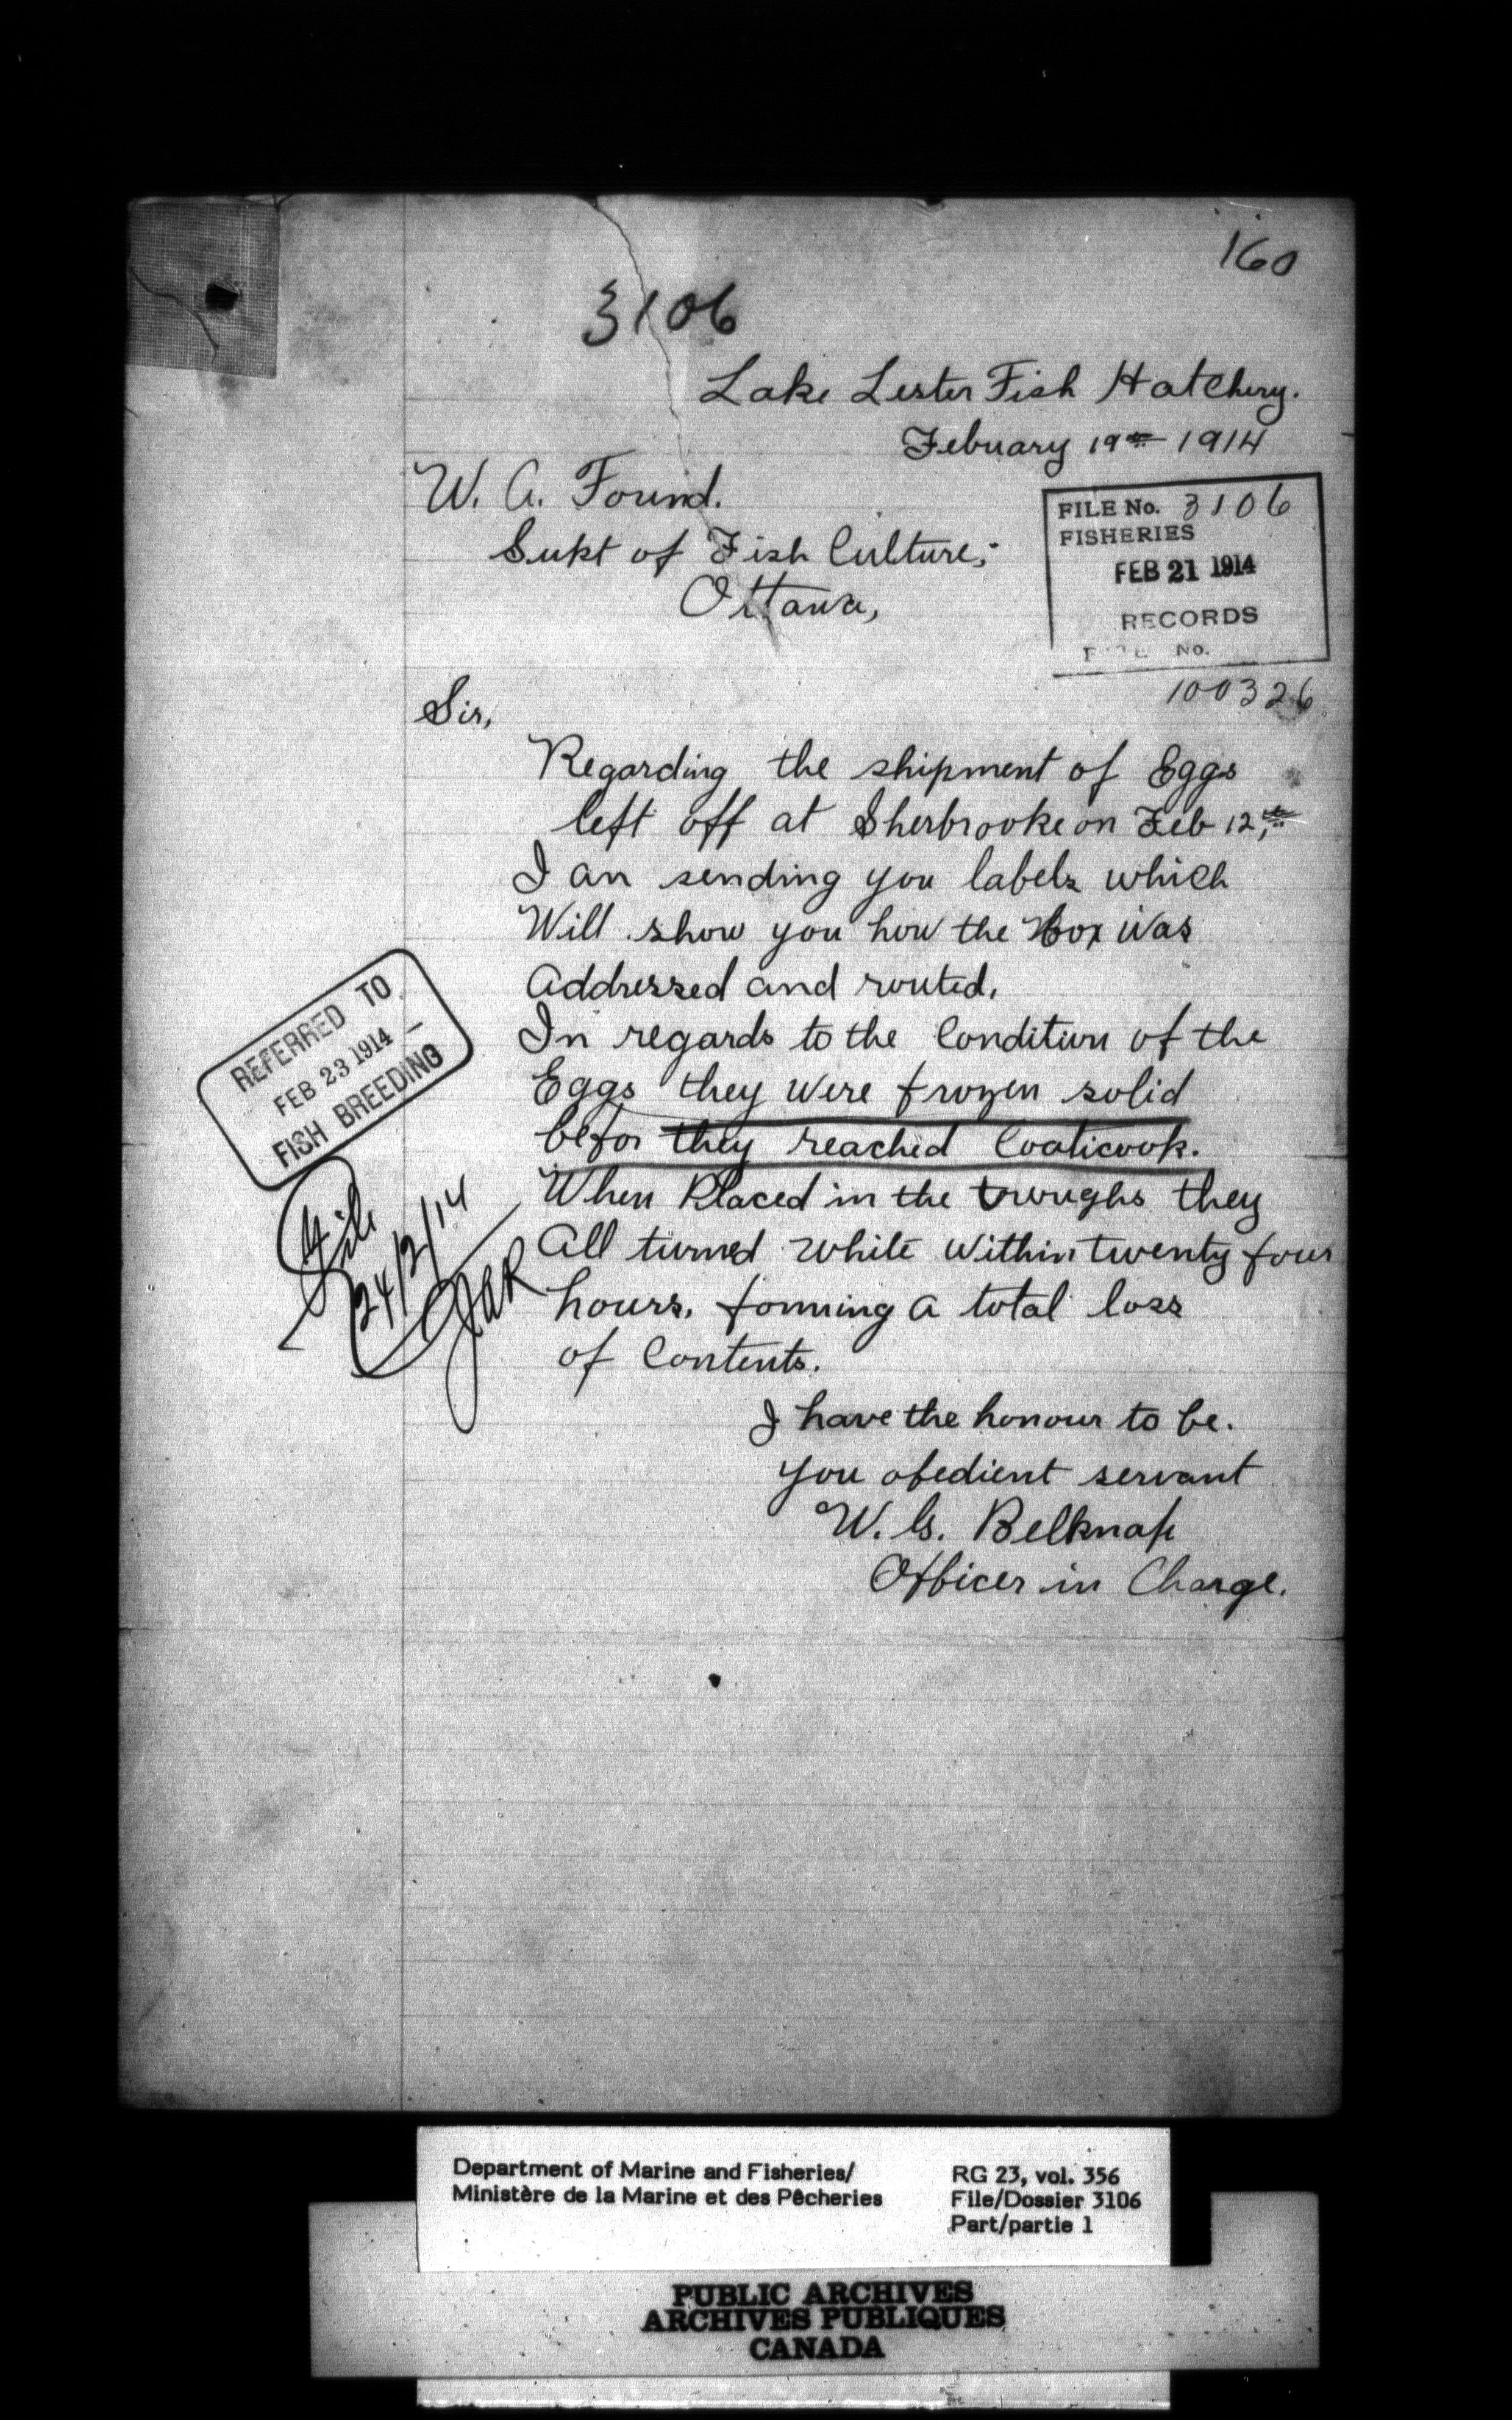 160
3106
Lake Lester Fish Hatchery.
Febuary 19th 1914
W. A. Found.
Supt of Fish Culture,
Ottawa,
FILE No. 3106
FISHERIES
FEB 21 1914
RECORDS
FILE No.
100326
Sir,
Regarding the shipment of Eggs
left off at Sherbrooke on Feb 12th,
I an sending you labels which
Will show you how the Box Was
Addressed and routed,
In regards to the Condition of the
Eggs they Were frozen solid
befor they reached Coaticook.
When Placed in the troughs they
All turned White Within twenty four
hours, forming A total loss
of Contents.
I have the honour to be.
you obedient servant
W. G. Belknap
Officer in Charge.
REFERRED TO
FEB 23 1914
FISH BREEDING
File
24/2/14
Department of Marine and Fisheries/
Ministère de la Marine et des Pêcheries
RG 23, vol. 356
File/Dossier 3106
Part/partie 1
PUBLIC ARCHIVES
ARCHIVES PUBLIQUES
CANADA